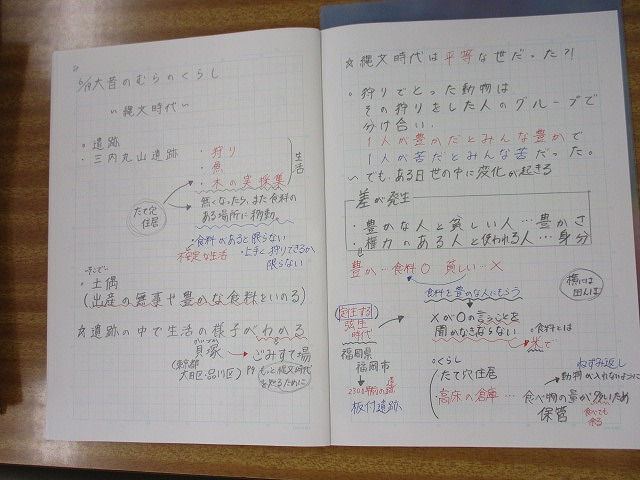 大昔のむらのくらし
〜縄文時代〜
・遺跡
・三内丸山遺跡
・狩り
・魚
・木の実採集
生活
たて穴
住居
無くなったら、また食料の
ある場所に移動。
・食料があると限らない
不安定な生活
・上手く狩りできるか
限らない
・土偶
(出産の無事や豊かな食料をいのる)
☆遺跡の中で生活の様子がわかる
貝塚
かいづか
→ごみすて場
(東京都
大田区・品川区)
もっと縄文時代
を知るために
☆縄文時代は平等な世だった?!
・狩りでとった動物は
その狩りをした人のグループで
分け合い.
1人が豊かだとみんな豊かで
1人が苦だとみんな苦だった。
〜でもある日世の中に変化が起きる
差が発生
・豊かな人と貧しい人…豊かさ
・権力のある人と使われる人…身分
豊か…食料○ 貧しい…×
食料を豊かな人にもらう
弥生
時代
×が○の言うことを
聞かなきゃならない
・食料とは
米で
福岡県
福岡市
板付遺跡
○くらし
たて穴住居
高床の倉庫…食べ物の量が多いため
保管
食べても
余る
ねずみ返し
動物が入れないように